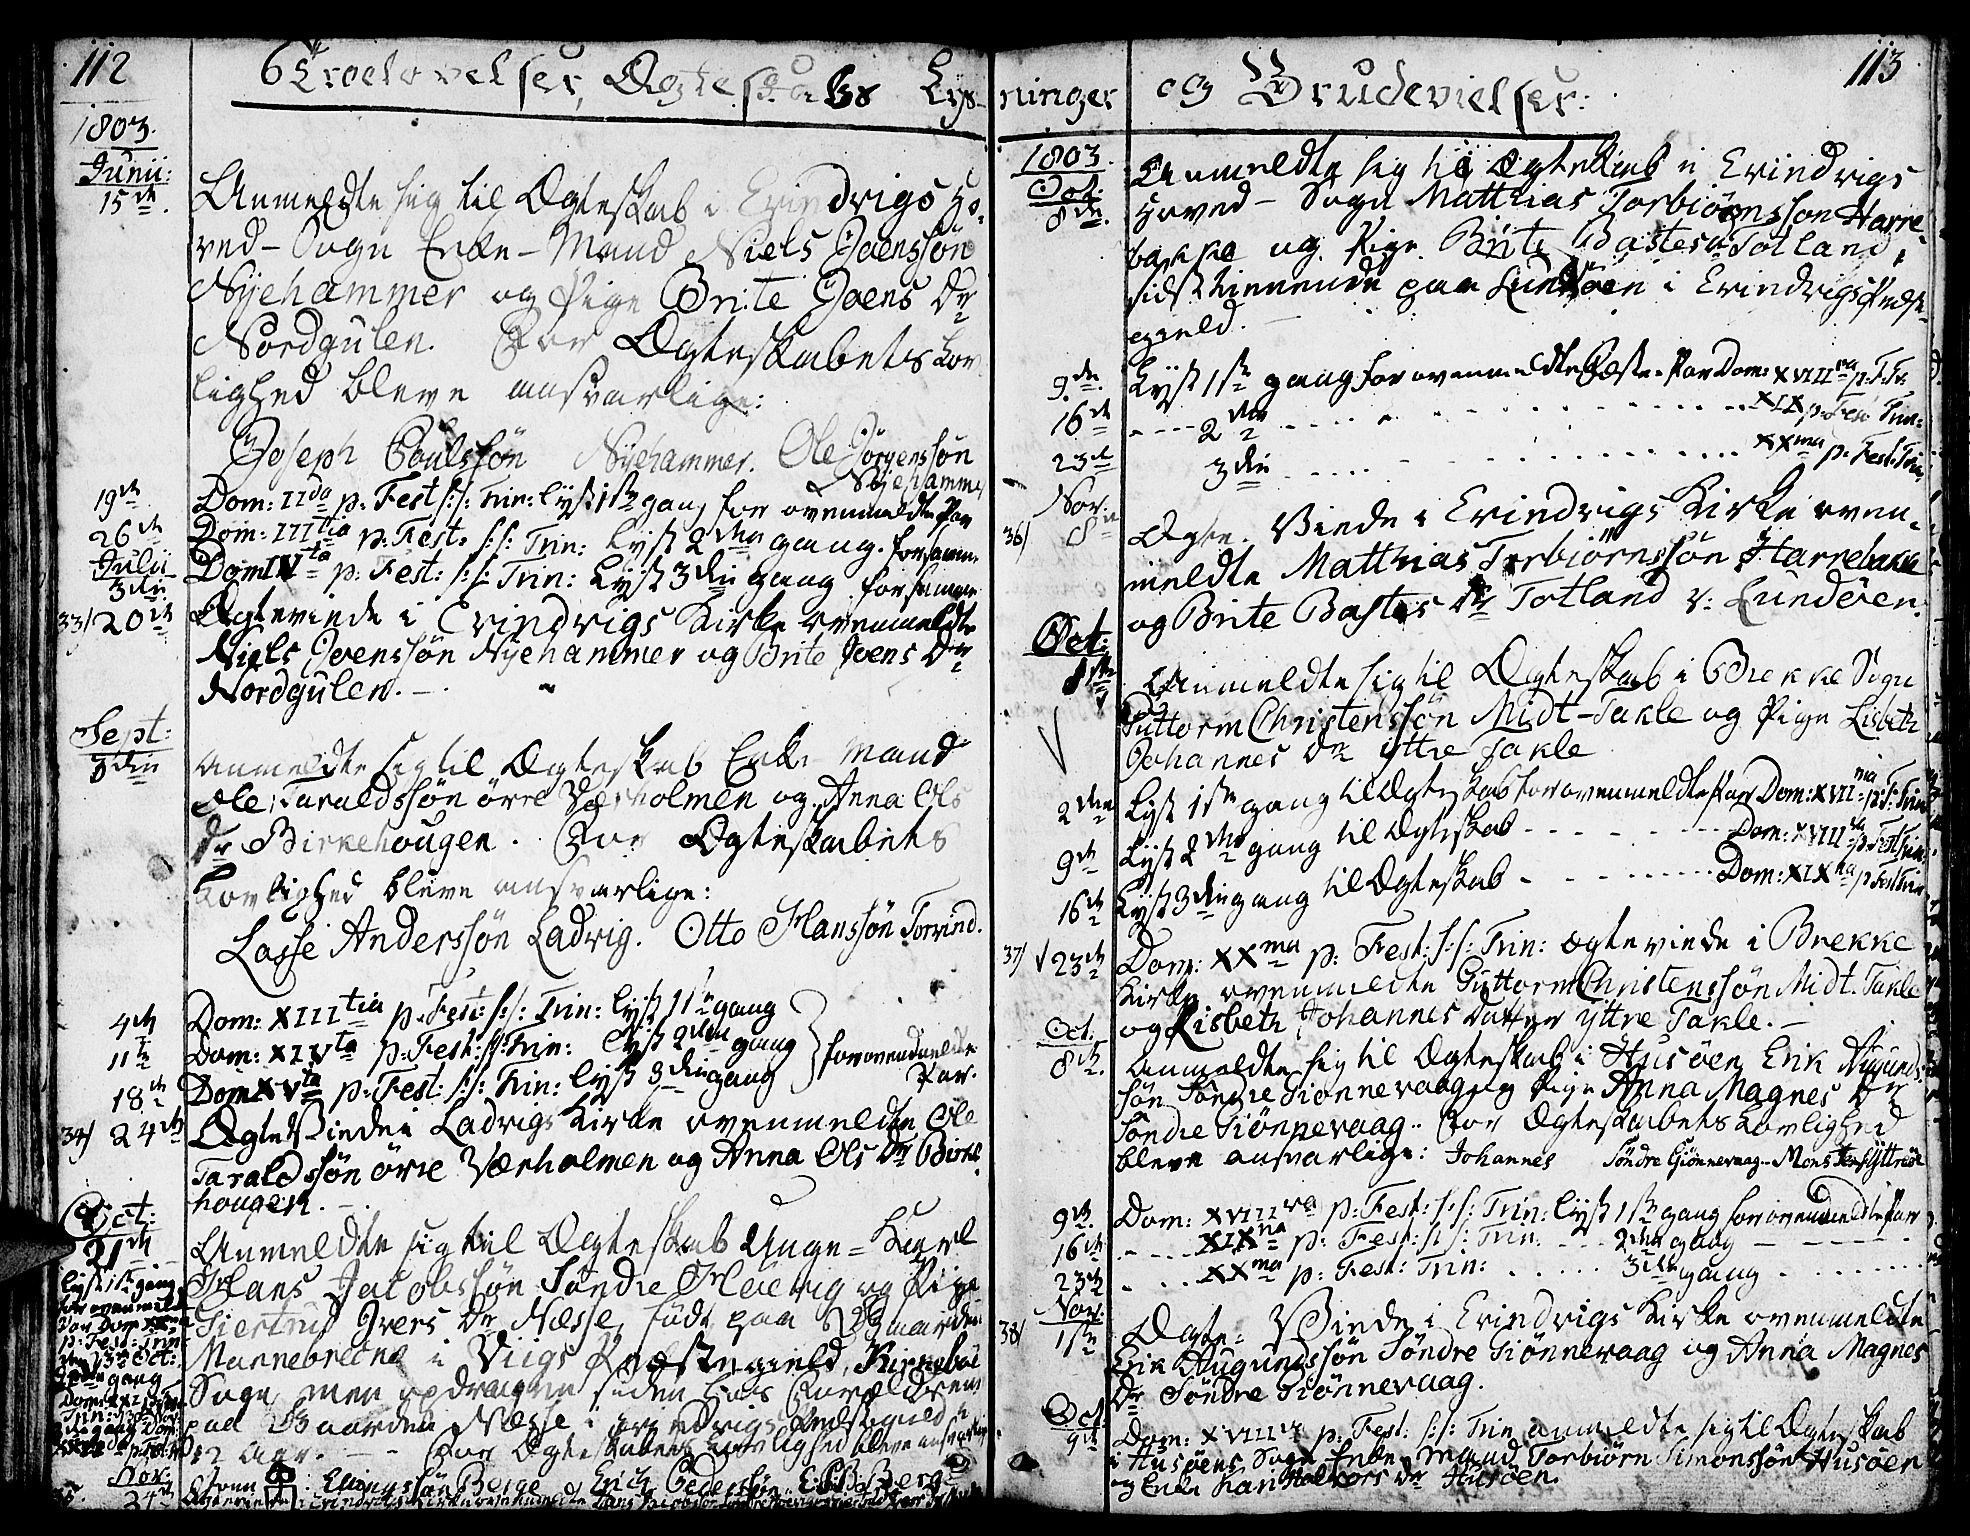 112
Troelovelser, Ægteskabs Lys-
1803.
Junii:
15de.
Anmeldte sig til Ægteskab i Evindrigs Ho-
ved-Sogn Enke-Mand Niels Joenssøn
Nyehammer og Pige Brite Joens Dr
Nordgulen. For Ægteskabets Lov-
lighed bleve ansvarlige:
Joseph Poulssøn Nyehammer. Ole Jørgenssøn
Nyehammer
19de Dom: IIda p: Fest: s:s: Trin: lyst 1ste gang for ovenmeldte Par
26de Dom: IIItia p: Fest: s:s: Trin: lyst 2den gang for samme
Julii
3die Dom IVta p: Fest: s:s: Trin: Lyst 3die gang for samme
33) 20de Ægteviede i Evindrigs Kirke ovenmeldte
Niels Joenssøn Nyehammer og Brite Joens Dr
Nordgulen.
Sept:
3die
Anmeldte sig til Ægteskab Enke Mand
Ole Taraldssøn örre Værholmen og Anna Ols
Dr Birkehougen. For Ægteskabets
Lovlighed bleve ansvarlige:
Lasse Anderssøn Ladvig. Otto Hanssøn Torvind.
4de Dom: XIIItia p: Fest: s:s: Trin: lyst 1ste gang
11te Dom: XIVta p: Fest: s:s: Trin: lyst 2den gang
18de Dom XVta p: Fest: s:s: Trin: lyst 3die gang
for ovenmeldte
Par.
34) 24de Ægteviede i Ladvigs Kirke ovenmeldte Ole
Taraldssøn örre Værholmen og Anna Ols Dr Birke-
hougen.
Oct:
21de
Anmeldte sig til Ægteskab Unge-Karl
Hans Jacobssøn Søndre og Pige
Giertrud Ivers Dr Næsse, født paa Gaarden
Mannebretne i Viigs Præstegield, Kirkebøe
Sogn, men opdragen siden hos Forældrene
paa Gaarden Næsse i Evindrigs Præstegield i
12 Aar. For Ægteskabets Lovlighed bleve ansvarlige
lyst 1ste gang
for ovenmeldte
Par Dom
p: Fest: Trin:
Oct:
gang
Nov:
Ellingssøn Berge Erich Pederssøn Berge
113
ninger og Brudevielser:
1803.
Oct:
8de.
Anmeldte sig til Ægteskab i Evindrigs
Hoved-Sogn Matthias Torbiørnssøn Harre-
bakke og Pige Brite Bastes Dr Totland,
sidst tienende paa Lundøen i Evindrigs Præste-
gield.
9de. Lyst 1ste gang for ovenmeldte Fæste-Par Dom: XVIIIva p: F: Tr:
16de 2den XIX p: Fest Trin:
23de 3die XXma p: Fest: Trin:
Nov:
36) 8de Ægte-Viede i Evindrigs Kirke oven-
meldte Matthias Torbiørnssøn Harrebakke
og Brite Bastes Dr Totland v: Lundøen.
Oct:
1ste Anmeldte sig til Ægteskab i Brekke Sogn
Guttorm Christenssøn Midt-Takle og Pige Lisbeth
Johannes Dr yttre Takle
2den Lyst 1ste gang til Ægteskab for ovenmeldte Par Dom: XVIIma p: F: Trin:
9de Lyst 2den gang til Ægteskab Dom: XVIIIva p: Fest Trin:
16de Lyst 3die gang til Ægteskab Dom: XIXna p: Fest Trin:
37) 23de Dom: XXma p: Fest: s:s: Trin: Ægteviede i Brekke
Kirke ovenmeldte Guttorm Christenssøn Midt-Takle
og Lisbeth Johannes Datter yttre Takle.
Oct:
8de. Anmeldte sig til Ægteskab i Husøen Erik Augunds-
søn Søndre Giønnevaag og Pige Anna Magnes Dr
Søndre Giønnevaag. For Ægteskabets Lovlighed
bleve ansvarlige: Johannes Søndre Giønnevaag. Mons Yttrøe
9de. Dom: XVIIIva p: Fest: s:s: Trin: lyst 1ste gang for ovenmeldte Par
16de XIXna p: Fest: s:s: Trin. 2den gang
23de XXma p: Fest: Trin: 3die gang
Nov:
38) 1ste Ægte-Viede i Evindrigs Kirke ovenmeldte
Erik Augundssøn Søndre Giønnevaag og Anna Magnes
Dr Søndre Giønnevaag.
Oct:
9de Dom: XVIIIva p: Fest: s:s: Trin anmeldte sig til Ægteskab
i Husøens Sogn Enke-Mand Torbiørn Simonssøn Husøen
og Enke Kari Halvors Dr Husøen.